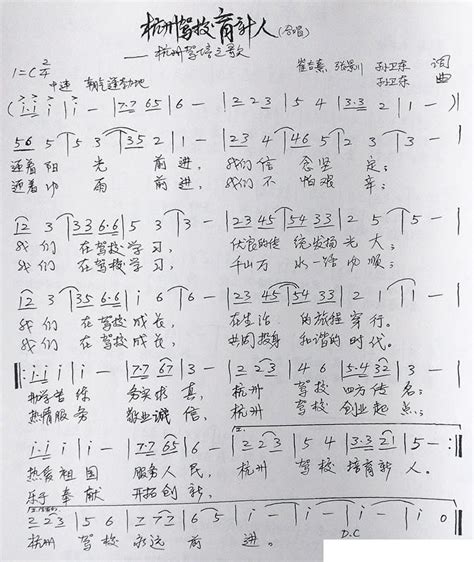 杭州驾校育新人(合唱)
——杭州驾培之歌
1=C 2/4
中速 朝气蓬勃地
孙卫东 词
孙卫东 曲
(i·i i | i — | 7·7 65 | 6 — | 2 2 3 | 5 4 | 3·3 2 | 1 — )
56 5 | 5 3 | 35 2 | 1 — | 23 4 | 46 5 | 2 3 | 3 — |
迎着阳光前进, 我们信念坚定;
迎着风雨前进, 我们不怕艰辛;
12 3 | 33 6·6 | 5 3 | 3 — | 23 45 | 54 33 | 2 5 | 5 — |
我们在驾校学习, 优良的传统发扬光大;
我们在驾校学习, 千山万水一路
12 3 | 35 6·6 | i 6 | 6 — | 23 45 | 54 33 | 2 1 | 1 — |
我们在驾校成长, 在生活的旅程穿行。
我们在驾校成长, 共同投身和谐的时代。
‖: i·i i | i — | 7·7 67 | 3 — | 2 2 3 | 4 6 | 5·4 32 | 3 — |
务实求真, 杭州驾校四方传名;
热情服务敬业诚信, 杭州驾校创业起点;
i·i i | i — | 7·7 65 | 6 — | 2 2 3 | 5 4 | 3·3 21 | 5 — :‖
热爱祖国服务人民, 杭州驾校培育新人。
乐于奉献开拓创新,
2 2 3 | 5 6 | 7 7 7 | 6 5 | i — | i — | i — | i 0 ‖
杭州驾校永远前进。 D.C